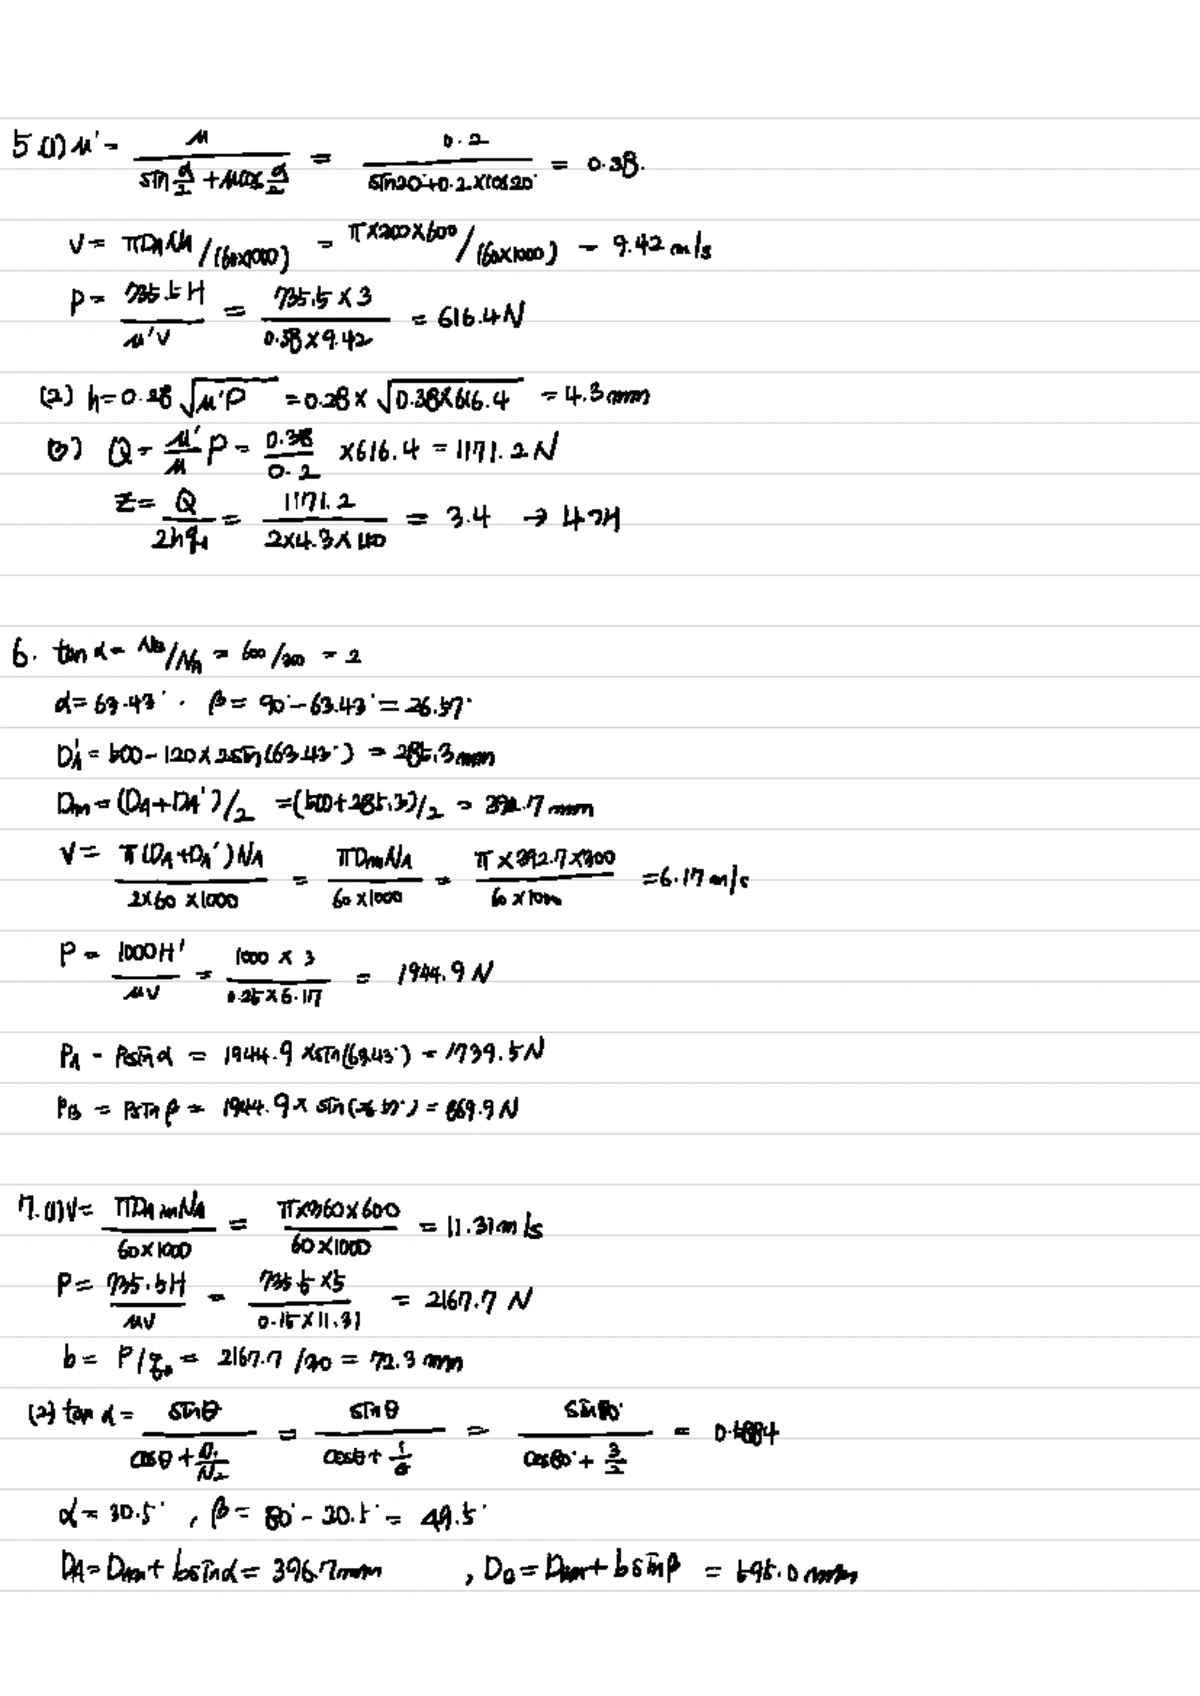 5.(1) μ' = μ / (sin α/2 + μcos α/2) = 0.2 / (sin20°+0.2×cos20°) = 0.38.
V = πD_A N_A/(60×1000) = π×300×600/(60×1000) = 9.42 m/s
P = 735.5H / μ'V = 735.5×3 / 0.38×9.42 = 616.4N
(2) h=0.28√μ'P = 0.28×√0.38×616.4 = 4.3mm
(3) Q = μ'/μ P = 0.38/0.2 ×616.4 = 1171.2N
Z = Q / 2hq₁ = 1171.2 / 2×4.3×40 = 3.4 → 4개
6. tan α = N_B/N_A = 600/300 = 2
α=63.43°. β = 90°-63.43° = 26.57°
D_A' = 500-120×2sin(63.43°) = 285.3mm
Dm = (D_A+D_A')/2 = (500+285.3)/2 = 392.7mm
V = π(D_A+D_A')N_A / 2×60×1000 = πDmN_A / 60×1000 = π×392.7×300 / 60×1000 = 6.17m/s
P = 1000H' / μV = 1000×3 / 0.25×6.17 = 1944.9N
P_A = Psinα = 1944.9×sin(63.43°) = 1739.5N
P_B = Psinβ = 1944.9×sin(26.57°) = 869.9N
7.(1) V = πD_AmN_A / 60×1000 = π×360×600 / 60×1000 = 11.31m/s
P = 735.5H / μV = 735.5×5 / 0.15×11.31 = 2167.7 N
b = P/q₀ = 2167.7/30 = 72.3mm
(2) tan α = sinθ / (cosθ + / N₂) = sinθ / (cosθ + 1/) = sin80° / (cos80° + 3/2) = 0.5884
α = 30.5°, β = 80° - 30.5° = 49.5°
D_A = D_Am + bsinα = 396.7mm , D_B = D_Bm + bsinβ = 595.0mm